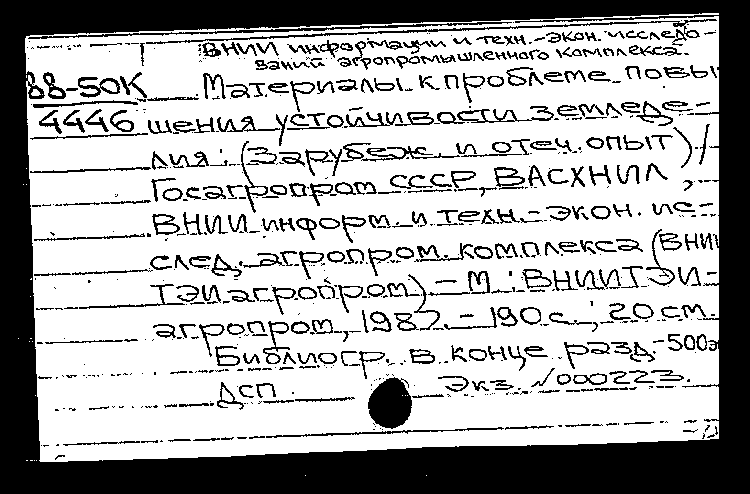 ВНИИ информации и техн.-экон. исследо-
ваний агропромышленного комплекса.
88-50К Материалы к проблеме повы
4446 шения устойчивости земледе-
лия: (Зарубеж. и отеч. опыт) /
Госагропром СССР, ВАСХНИЛ,
ВНИИ информ. и техн.-экон. ис-
след. агропром. комплекса (ВНИИ
ТЭИагропром).- М.: ВНИИТЭИ-
агропром, 1987.- 190 с.; 20 см.
Библиогр. в конце разд.-500э
ДСП. Экз. №000223.